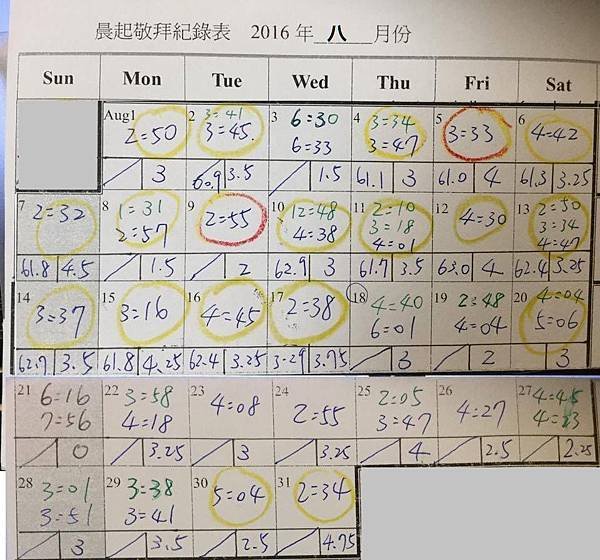 晨起敬拜紀錄表 2016 年 八 月份
Sun Mon Tue Wed Thu Fri Sat
Aug1 2 3 4 5 6
3=41 6=30 3=34
2=50 3=45 6=33 3=47 3=33 4=42
/ 3 60.9 3.5 / 1.5 61.1 3 61.0 4 61.3 3.25
7 8 9 10 11 12 13
2=32 1=31 2=55 12=48 2=10 4=30 2=50
2=57 4=38 3=18 3=34
4=01 4=47
61.8 4.5 / 1.5 / 2 62.9 3 61.7 3.5 63.0 4 62.4 3.25
14 15 16 17 18 19 20
3=37 3=16 4=45 2=38 4=40 2=48 4=04
6=01 4=04 5=06
62.7 3.5 61.8 4.25 62.4 3.25 3.75 / 3 / 2 3
21 22 23 24 25 26 27
6=16 3=58 4=08 2=55 2=05 4=27 4=45
7=56 4=18 3=47
/ 0 / 3.25 / 3 / 3.25 / 4 / 2.5 / 2.25
28 29 30 31
3=01 3=38 5=04 2=34
3=51 3=41
/ 3 / 3.5 / 2.5 / 4.75